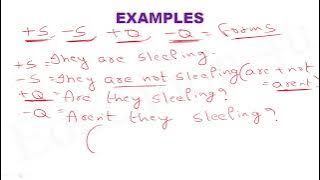 EXAMPLES
+S -S +Q -Q = Forms
+S = They are sleeping.
-S = They are not sleeping (are + not = arent)
+Q = Are they sleeping?
-Q = Arent they sleeping?
(